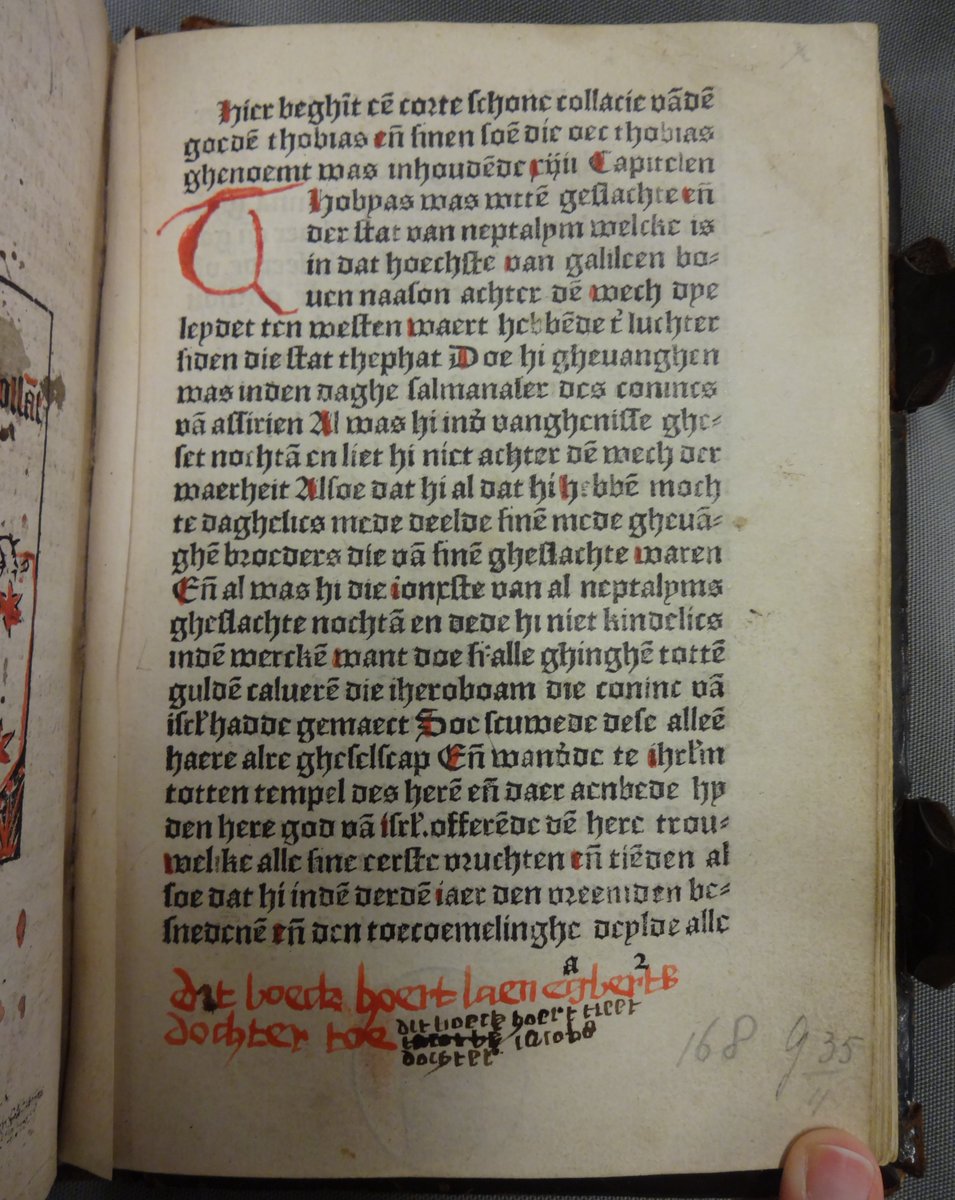 Hier beghĩt eẽ corte schone collacie vãdẽ
goedẽ thobias eñ sinen soẽ die oec thobias
ghenoemt was inhoudẽde xiiii Capitelen
Thobyas was wttẽ geslachte eñ
der stat van neptalym welcke is
in dat hoechste van galileen bo⸗
uen naason achter dẽ wech dye
leydet ten westen waert hebbẽde t᷑ luchter
siden die stat thephat Doe hi gheuanghen
was inden daghe salmanaser des conincs
vã assirien Al was hi ind᷑ vanghenisse ghe⸗
set nochtã en liet hi niet achter dẽ wech der
waerheit Alsoe dat hi al dat hi hebbẽ moch
te daghelics mede deelde sinẽ mede gheuã⸗
ghẽ broeders die vã sinẽ gheslachte waren
Eñ al was hi die ionxste van al neptalyms
gheslachte nochtã en dede hi niet kindelics
indẽ werckẽ want doe si alle ghinghẽ tottẽ
guldẽ caluerẽ die iheroboam die coninc vã
isrł hadde gemaect Soe scuwede dese alleẽ
haere alre gheselscap Eñ wand᷑de te ihrłm
totten tempel des herẽ eñ daer aenbede hy
den here god vã isrł. offerẽde dẽ here trou⸗
welike alle sine eerste vruchten eñ tiẽden al
soe dat hi indẽ derdẽ iaer den vreemden be⸗
snedenẽ eñ den toecoemelinghe deylde alle
a 2
dit boeck hoert laen egberts
dochter toe
dit boeck hoert tleer
iacobs
dochter
168 g 35
4